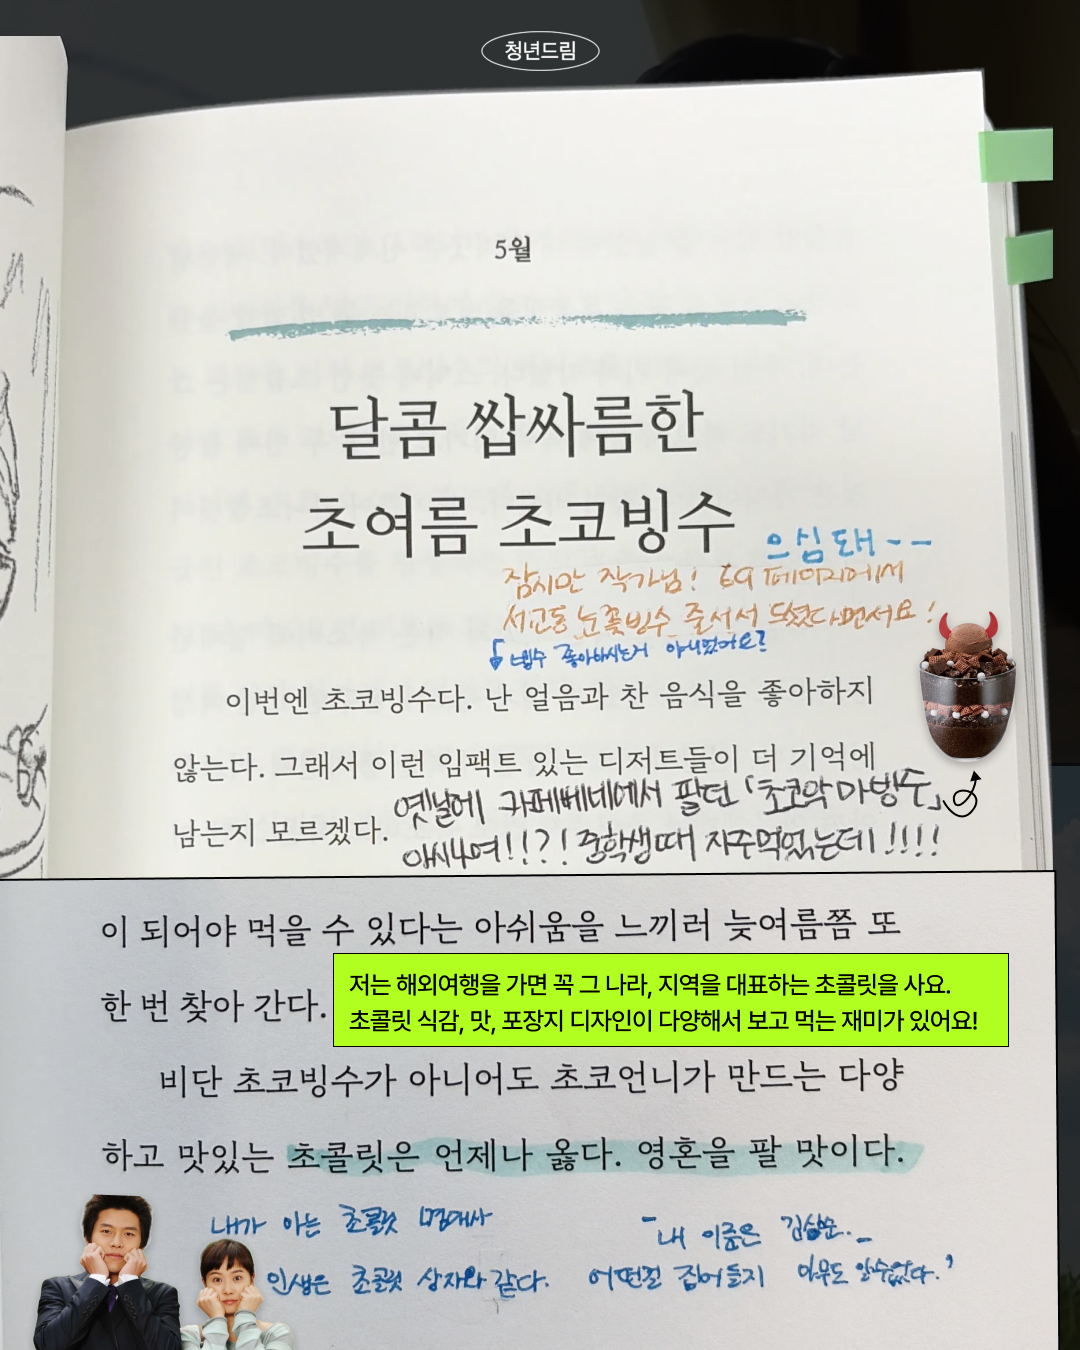 청년드림
5월
달콤 쌉싸름한
초여름 초코빙수
으심돼--
잠시만 작가님! 69페이지에서
서교동 눈꽃빙수 줄서서 드셨다면서요!
빙수 좋아하시는거 아니었어요?
이번엔 초코빙수다. 난 얼음과 찬 음식을 좋아하지
않는다. 그래서 이런 임팩트 있는 디저트들이 더 기억에
남는지 모르겠다.
옛날에 카페베네에서 팔던 「초코악마빙수」
아시나여!!?! 중학생때 자주먹었는데!!!!
이 되어야 먹을 수 있다는 아쉬움을 느끼러 늦여름쯤 또
한 번 찾아 간다.
저는 해외여행을 가면 꼭 그 나라, 지역을 대표하는 초콜릿을 사요.
초콜릿 식감, 맛, 포장지 디자인이 다양해서 보고 먹는 재미가 있어요!
비단 초코빙수가 아니어도 초코언니가 만드는 다양
하고 맛있는 초콜릿은 언제나 옳다. 영혼을 팔 맛이다.
내가 아는 초콜릿 명대사
「내 이름은 김삼순」
인생은 초콜릿 상자와 같다. 어떤걸 집어들지 아무도 알수없다.'